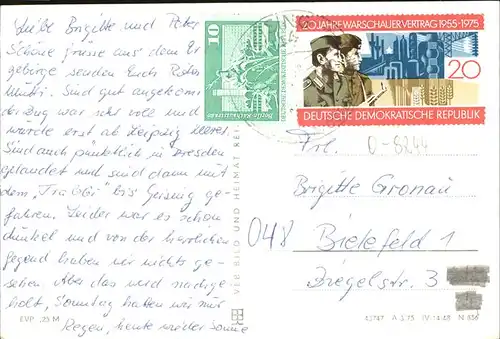 Liebe Brigitte und Peter
Schöne Grüsse aus dem Erz
gebirge senden Euch Peter
Mutti. Sind gut angekomm
der Zug war sehr voll und
wurde erst ab Leipzig leerer.
Sind auch pünktlich in Dresden
gelandet und sind dann mit
dem „Trabbi" bis Geising ge-
fahren. Leider war es schon
dunkel und von der herrlichen
Gegend haben wir nichts ge-
sehen. Aber das wird nachge-
holt, Sonntag hatten wir nur
Regen, heute wieder Sonne
EVP
VEB BILD UND HEIMAT REI
10
DEUTSCHE DEMOKRATISCHE
20 JAHRE WARSCHAUER VERTRAG 1955-1975
20
DEUTSCHE DEMOKRATISCHE REPUBLIK
0-8244
Frl.
Brigitte Gronau
048
Bielefeld 1
Ziegelstr. 3
A 3/75 IV-14-48 N 836